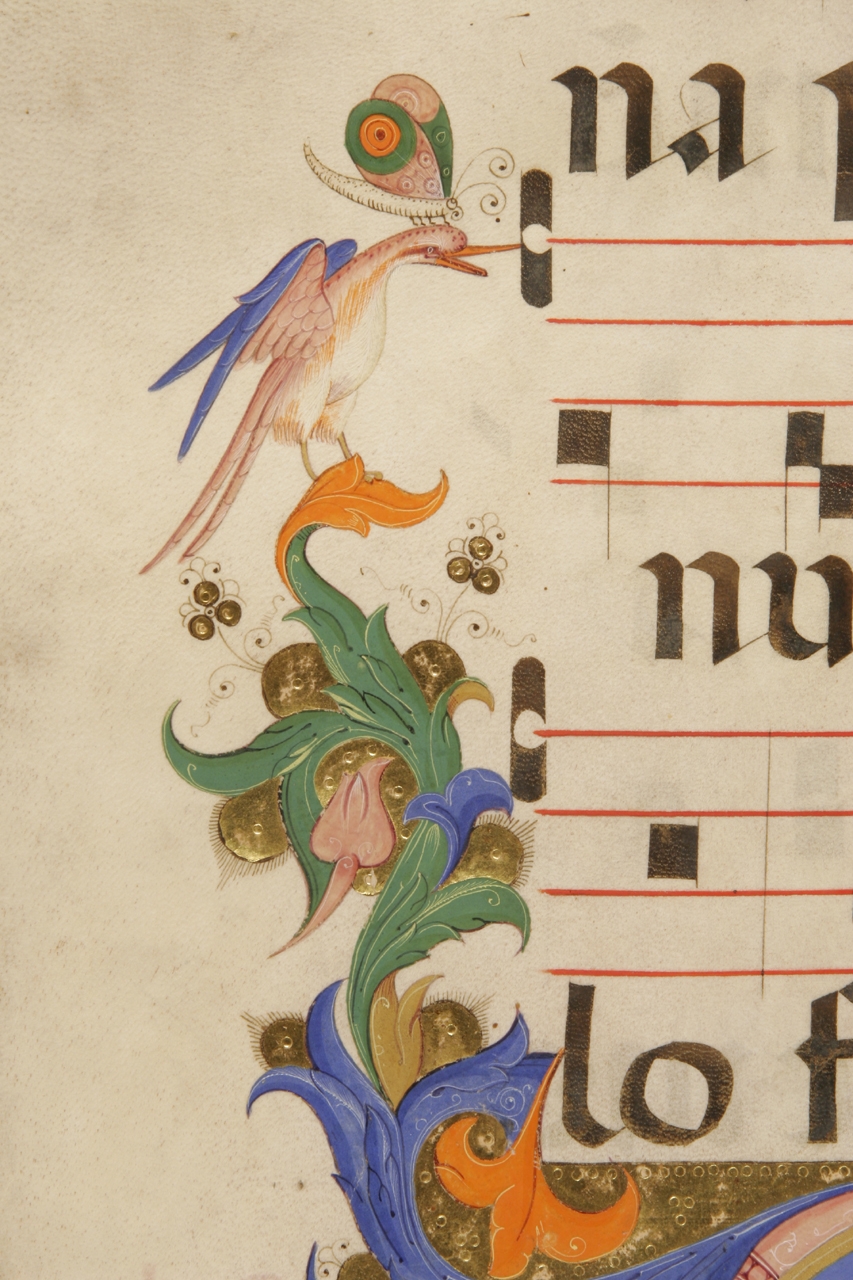 na
nu
lo f